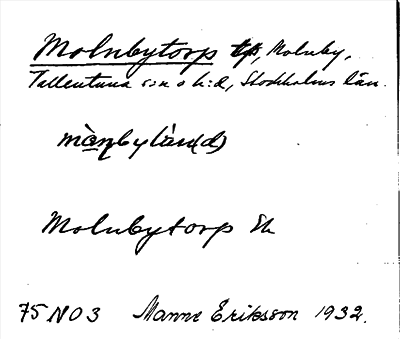 Molnbytorp tp, Molnby,
Vallentuna sn o h:d, Stockholms län.
mànbylàn(d)
Molnbytorp Ek
75 NO 3 Manne Eriksson 1932.